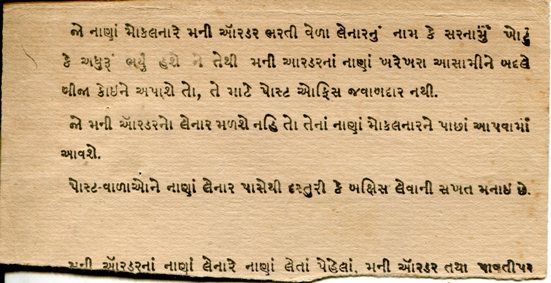 જો નાણાં મોકલનારે મની ઑરડર ભરતી વેળા લેનારનું નામ કે સરનામું ખોટું
કે અધુરૂં ભર્યું હશે ને તેથી મની આરડરનાં નાણાં ખરેખરા આસામીને બદલે
બીજા કોઇને અપાશે તો, તે માટે પોસ્ટ ઑફિસ જવાબદાર નથી.
જો મની ઑરડરનો લેનાર મળશે નહિ તો તેનાં નાણાં મોકલનારને પાછાં આપવામાં
આવશે.
પોસ્ટ-વાળાઓને નાણાં લેનાર પાસેથી દસ્તુરી કે બક્ષિસ લેવાની સખત મનાઇ છે.
મની ઑરડરનાં નાણાં લેનારે નાણાં લેતાં પેહેલાં, મની ઑરડર તથા પાવતીપર